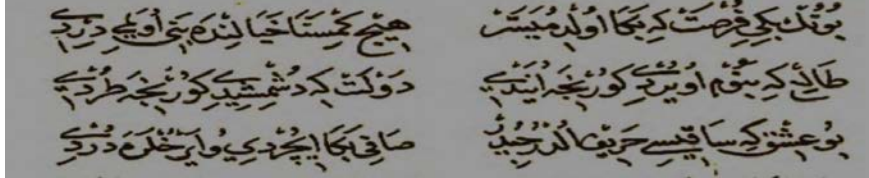 بُوتُكْ بِكِي فُرْصَتْ كِه بَكَا اُولْدِ مُيَسَّرْ هِيچ كِمْسَنَا خَيَالِنْدَه بَنِي اُويْلَه دِرِدِي
طَالِعْ كِه اُويُرْدِ كُورُنْجَه اُيَنْدِي دَوْلَتْ كِه دُشْمِشِيدِ كُورُنْجَه طُرْدِي
بُو عِشْق كِه سَاقِيسِي حَرِيف اُلْدُرُجِيدُرْ صَاقِي بَكَا اِيچُرْدِي وُ اَيْرُخْلَرَه دُرْدِي